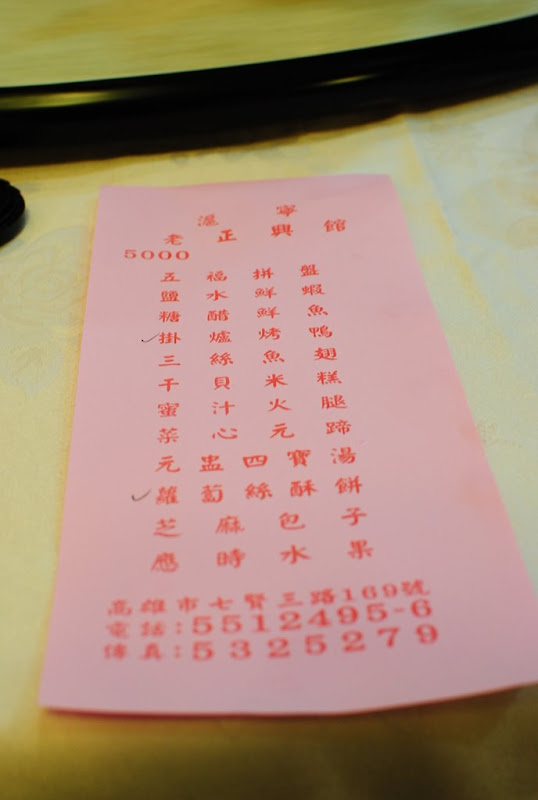 滬寧
老正興館
5000
五福拼盤
鹽水鮮蝦
糖醋鮮魚
掛爐烤鴨
三絲魚翅
干貝米糕
蜜汁火腿
菜心元蹄
元盅四寶湯
蘿蔔絲酥餅
芝麻包子
應時水果
高雄市七賢三路169號
電話:5512495-6
傳真:5325279